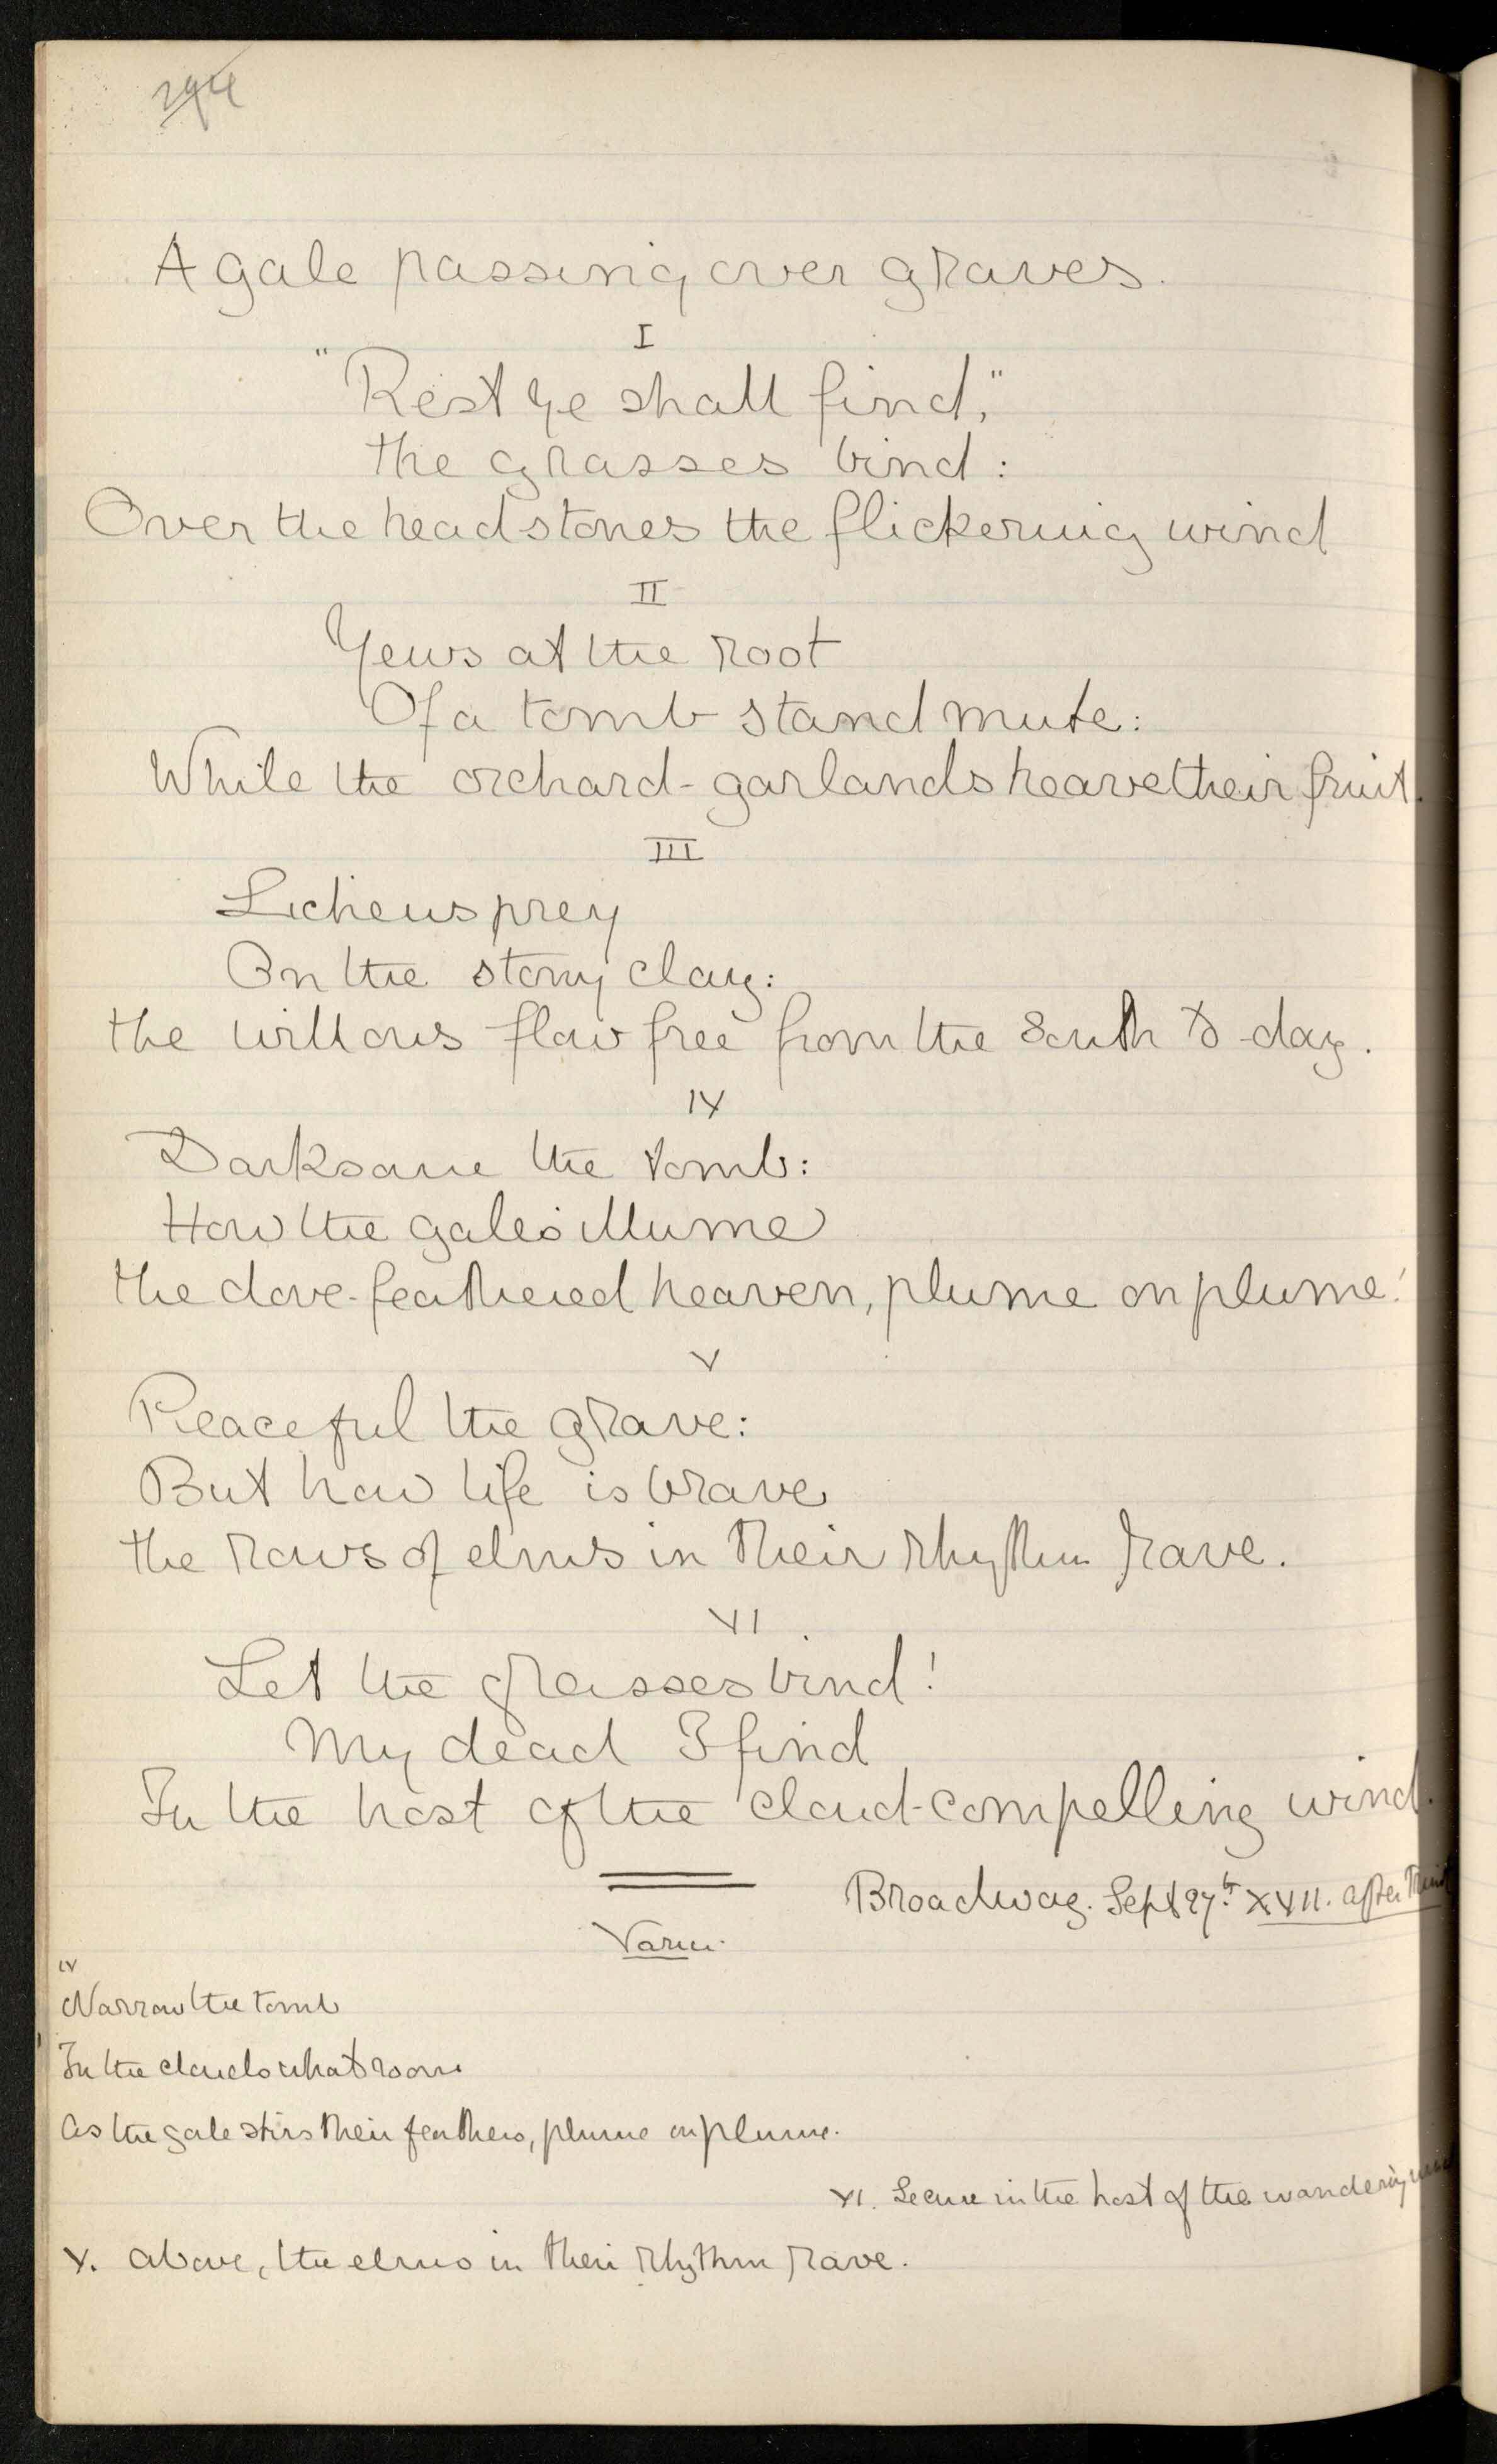 A gale passing over graves.
I
"Rest ye shall find,"
the grasses bind:
Over the headstones the flickering wind
II
Yews at the root
Of a tomb stand mute:
While the orchard-garlands heave their fruit.
III
Lichens prey
On the stony clay:
the willows flow free from the South to-day.
IV
Darksome the tomb:
How the gales illume
the dove-feathered heaven, plume on plume!
V
Peaceful the grave:
But how life is brave
the rows of elms in their rhythm rave.
VI
Let the grasses bind!
My dead I find
In the host of the cloud-compelling wind.
Broadway. Sept 27th XVII. after
IV
Narrow the tomb
In the clouds what room
As the gale stirs their feathers, plume on plume.
VI. Secure in the host of the wandering
V. above, the elms in their rhythm rave.